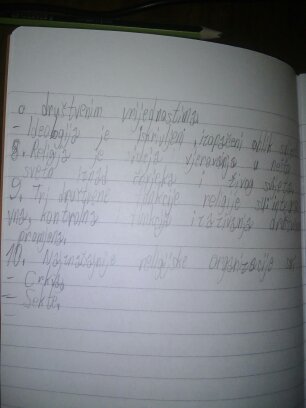 o društvenim vrijednostima
- Ideologija je iskrivljeni, izopačeni oblik
8. Religija je skup vjerovanja u nešto
sveto iznad čovjeka i živog svijeta.
9. Tri društvene funkcije religije su
kontrolna funkcija i izazivanja društvenih
promjena.
10. Najznačajnije religijske organizacije su:
- Crkva
- Sekte.